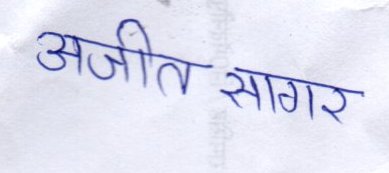 अजीत सागर